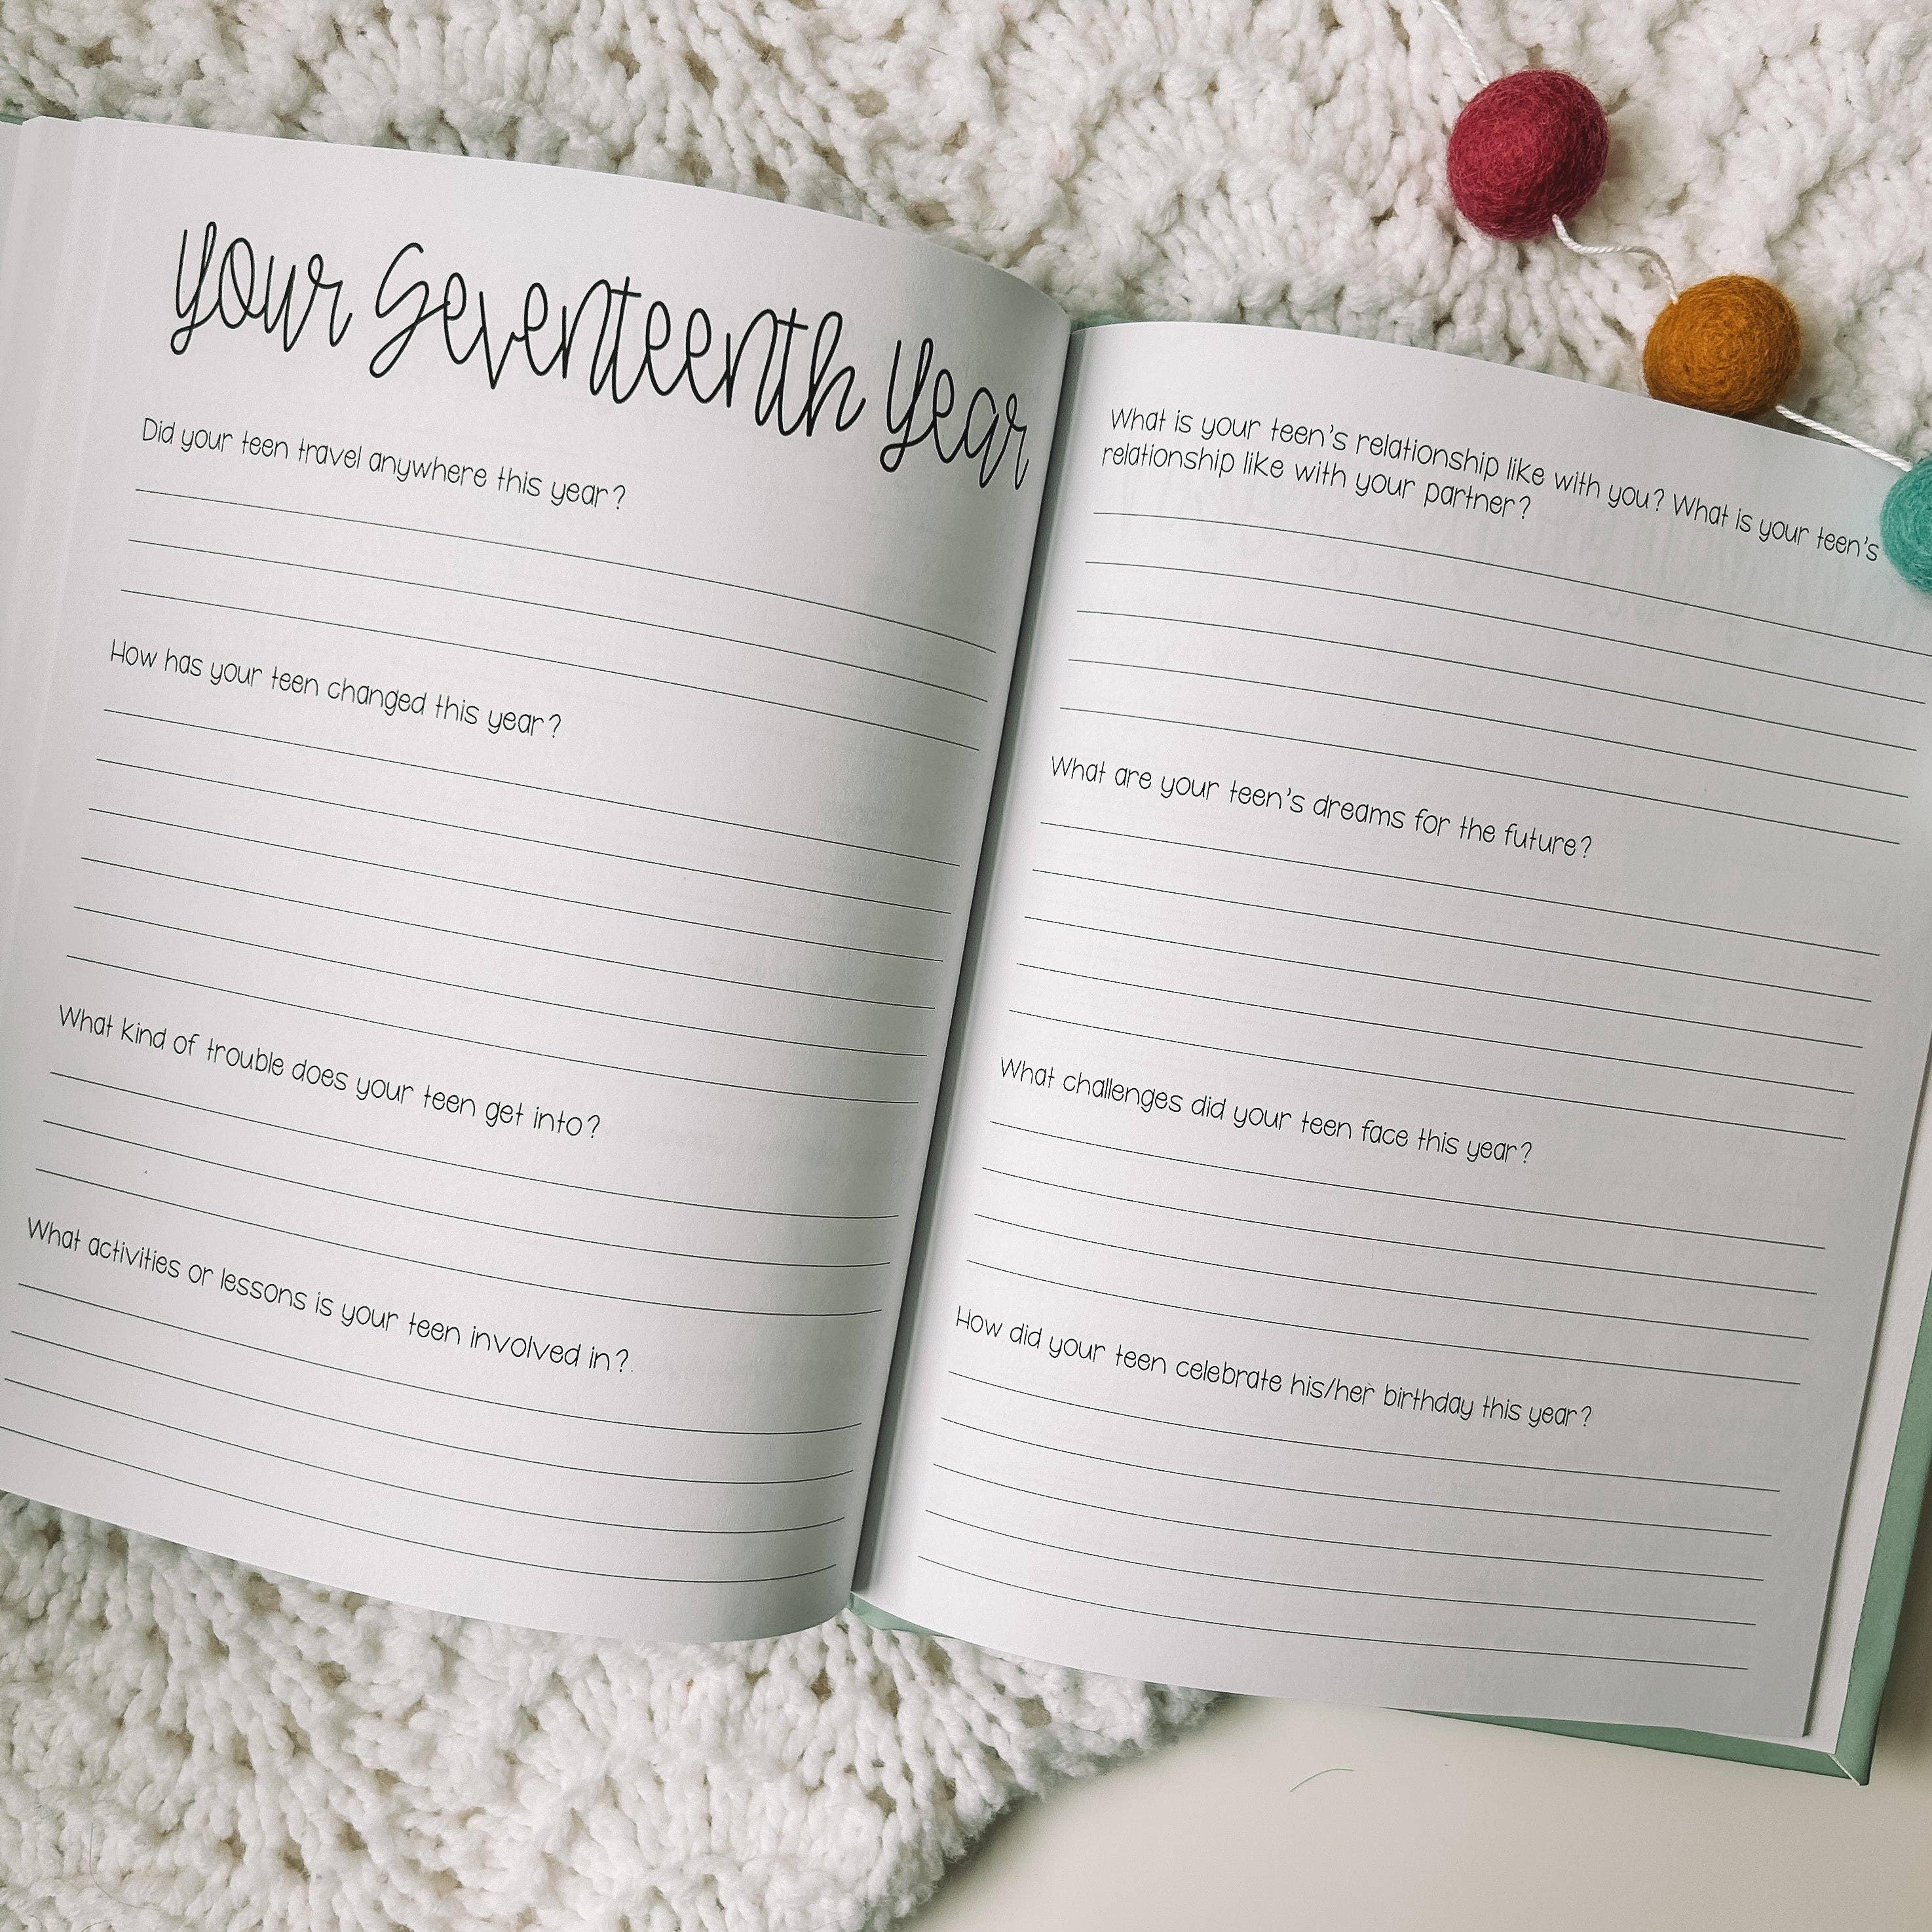 your seventeenth year
Did your teen travel anywhere this year?
How has your teen changed this year?
What kind of trouble does your teen get into?
What activities or lessons is your teen involved in?
What is your teen's relationship like with you? What is your teen's
relationship like with your partner?
What are your teen's dreams for the future?
What challenges did your teen face this year?
How did your teen celebrate his/her birthday this year?